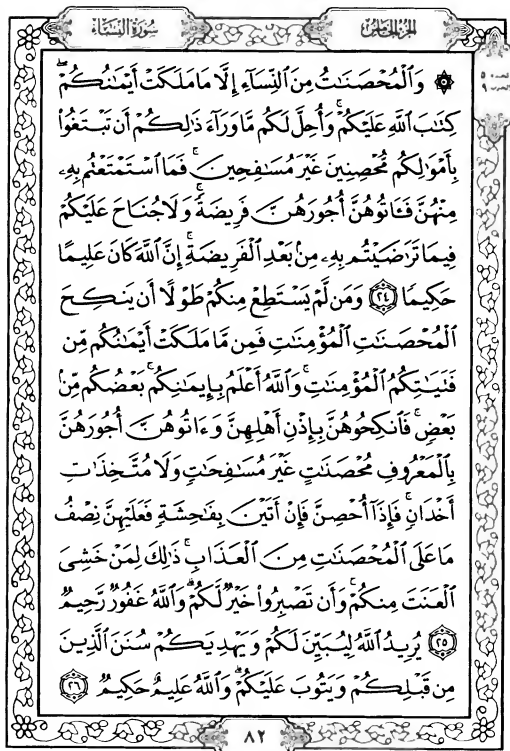 الجزء الخامس
سورة النساء
۞ وَالْمُحْصَنَاتُ مِنَ النِّسَاءِ إِلَّا مَا مَلَكَتْ أَيْمَانُكُمْ ۖ
كِتَابَ اللَّهِ عَلَيْكُمْ ۚ وَأُحِلَّ لَكُم مَّا وَرَاءَ ذَالِكُمْ أَن تَبْتَغُوا
بِأَمْوَالِكُم مُّحْصِنِينَ غَيْرَ مُسَافِحِينَ ۚ فَمَا اسْتَمْتَعْتُم بِهِ
مِنْهُنَّ فَـَٔاتُوهُنَّ أُجُورَهُنَّ فَرِيضَةً ۚ وَلَا جُنَاحَ عَلَيْكُمْ
فِيمَا تَرَاضَيْتُم بِهِ مِن بَعْدِ الْفَرِيضَةِ ۚ إِنَّ اللَّهَ كَانَ عَلِيمًا
حَكِيمًا ٢٤ وَمَن لَّمْ يَسْتَطِعْ مِنكُمْ طَوْلًا أَن يَنكِحَ
الْمُحْصَنَاتِ الْمُؤْمِنَاتِ فَمِن مَّا مَلَكَتْ أَيْمَانُكُم مِّن
فَتَيَاتِكُمُ الْمُؤْمِنَاتِ ۚ وَاللَّهُ أَعْلَمُ بِإِيمَانِكُم ۚ بَعْضُكُم مِّن
بَعْضٍ ۚ فَانكِحُوهُنَّ بِإِذْنِ أَهْلِهِنَّ وَءَاتُوهُنَّ أُجُورَهُنَّ
بِالْمَعْرُوفِ مُحْصَنَاتٍ غَيْرَ مُسَافِحَاتٍ وَلَا مُتَّخِذَاتِ
أَخْدَانٍ ۚ فَإِذَا أُحْصِنَّ فَإِنْ أَتَيْنَ بِفَاحِشَةٍ فَعَلَيْهِنَّ نِصْفُ
مَا عَلَى الْمُحْصَنَاتِ مِنَ الْعَذَابِ ۚ ذَالِكَ لِمَنْ خَشِيَ
الْعَنَتَ مِنكُمْ ۚ وَأَن تَصْبِرُوا خَيْرٌ لَّكُمْ ۗ وَاللَّهُ غَفُورٌ رَّحِيمٌ
٢٥ يُرِيدُ اللَّهُ لِيُبَيِّنَ لَكُمْ وَيَهْدِيَكُمْ سُنَنَ الَّذِينَ
مِن قَبْلِكُمْ وَيَتُوبَ عَلَيْكُمْ ۗ وَاللَّهُ عَلِيمٌ حَكِيمٌ ٢٦
٨٢